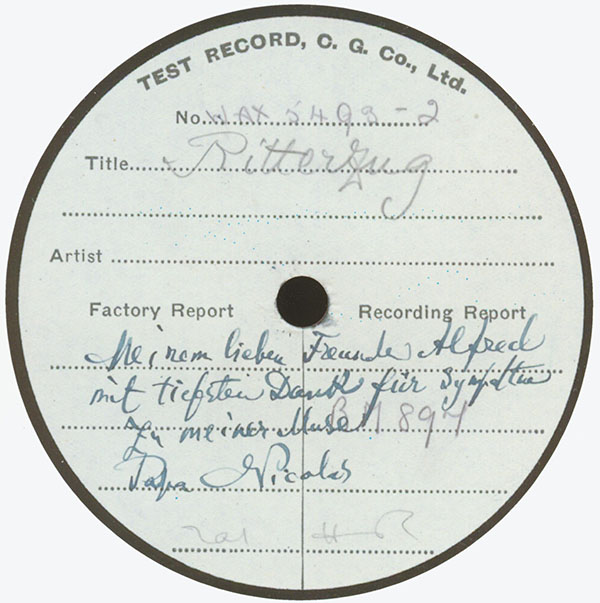 TEST RECORD, C. G. Co., Ltd.
No. WAX 5493-2
Title Ritterzug
Artist
Factory Report Recording Report
Meinem lieben Freunde Alfred
mit tiefsten Dank für Sympathie
zu meiner Muse
BM 894
Papa Nicolas